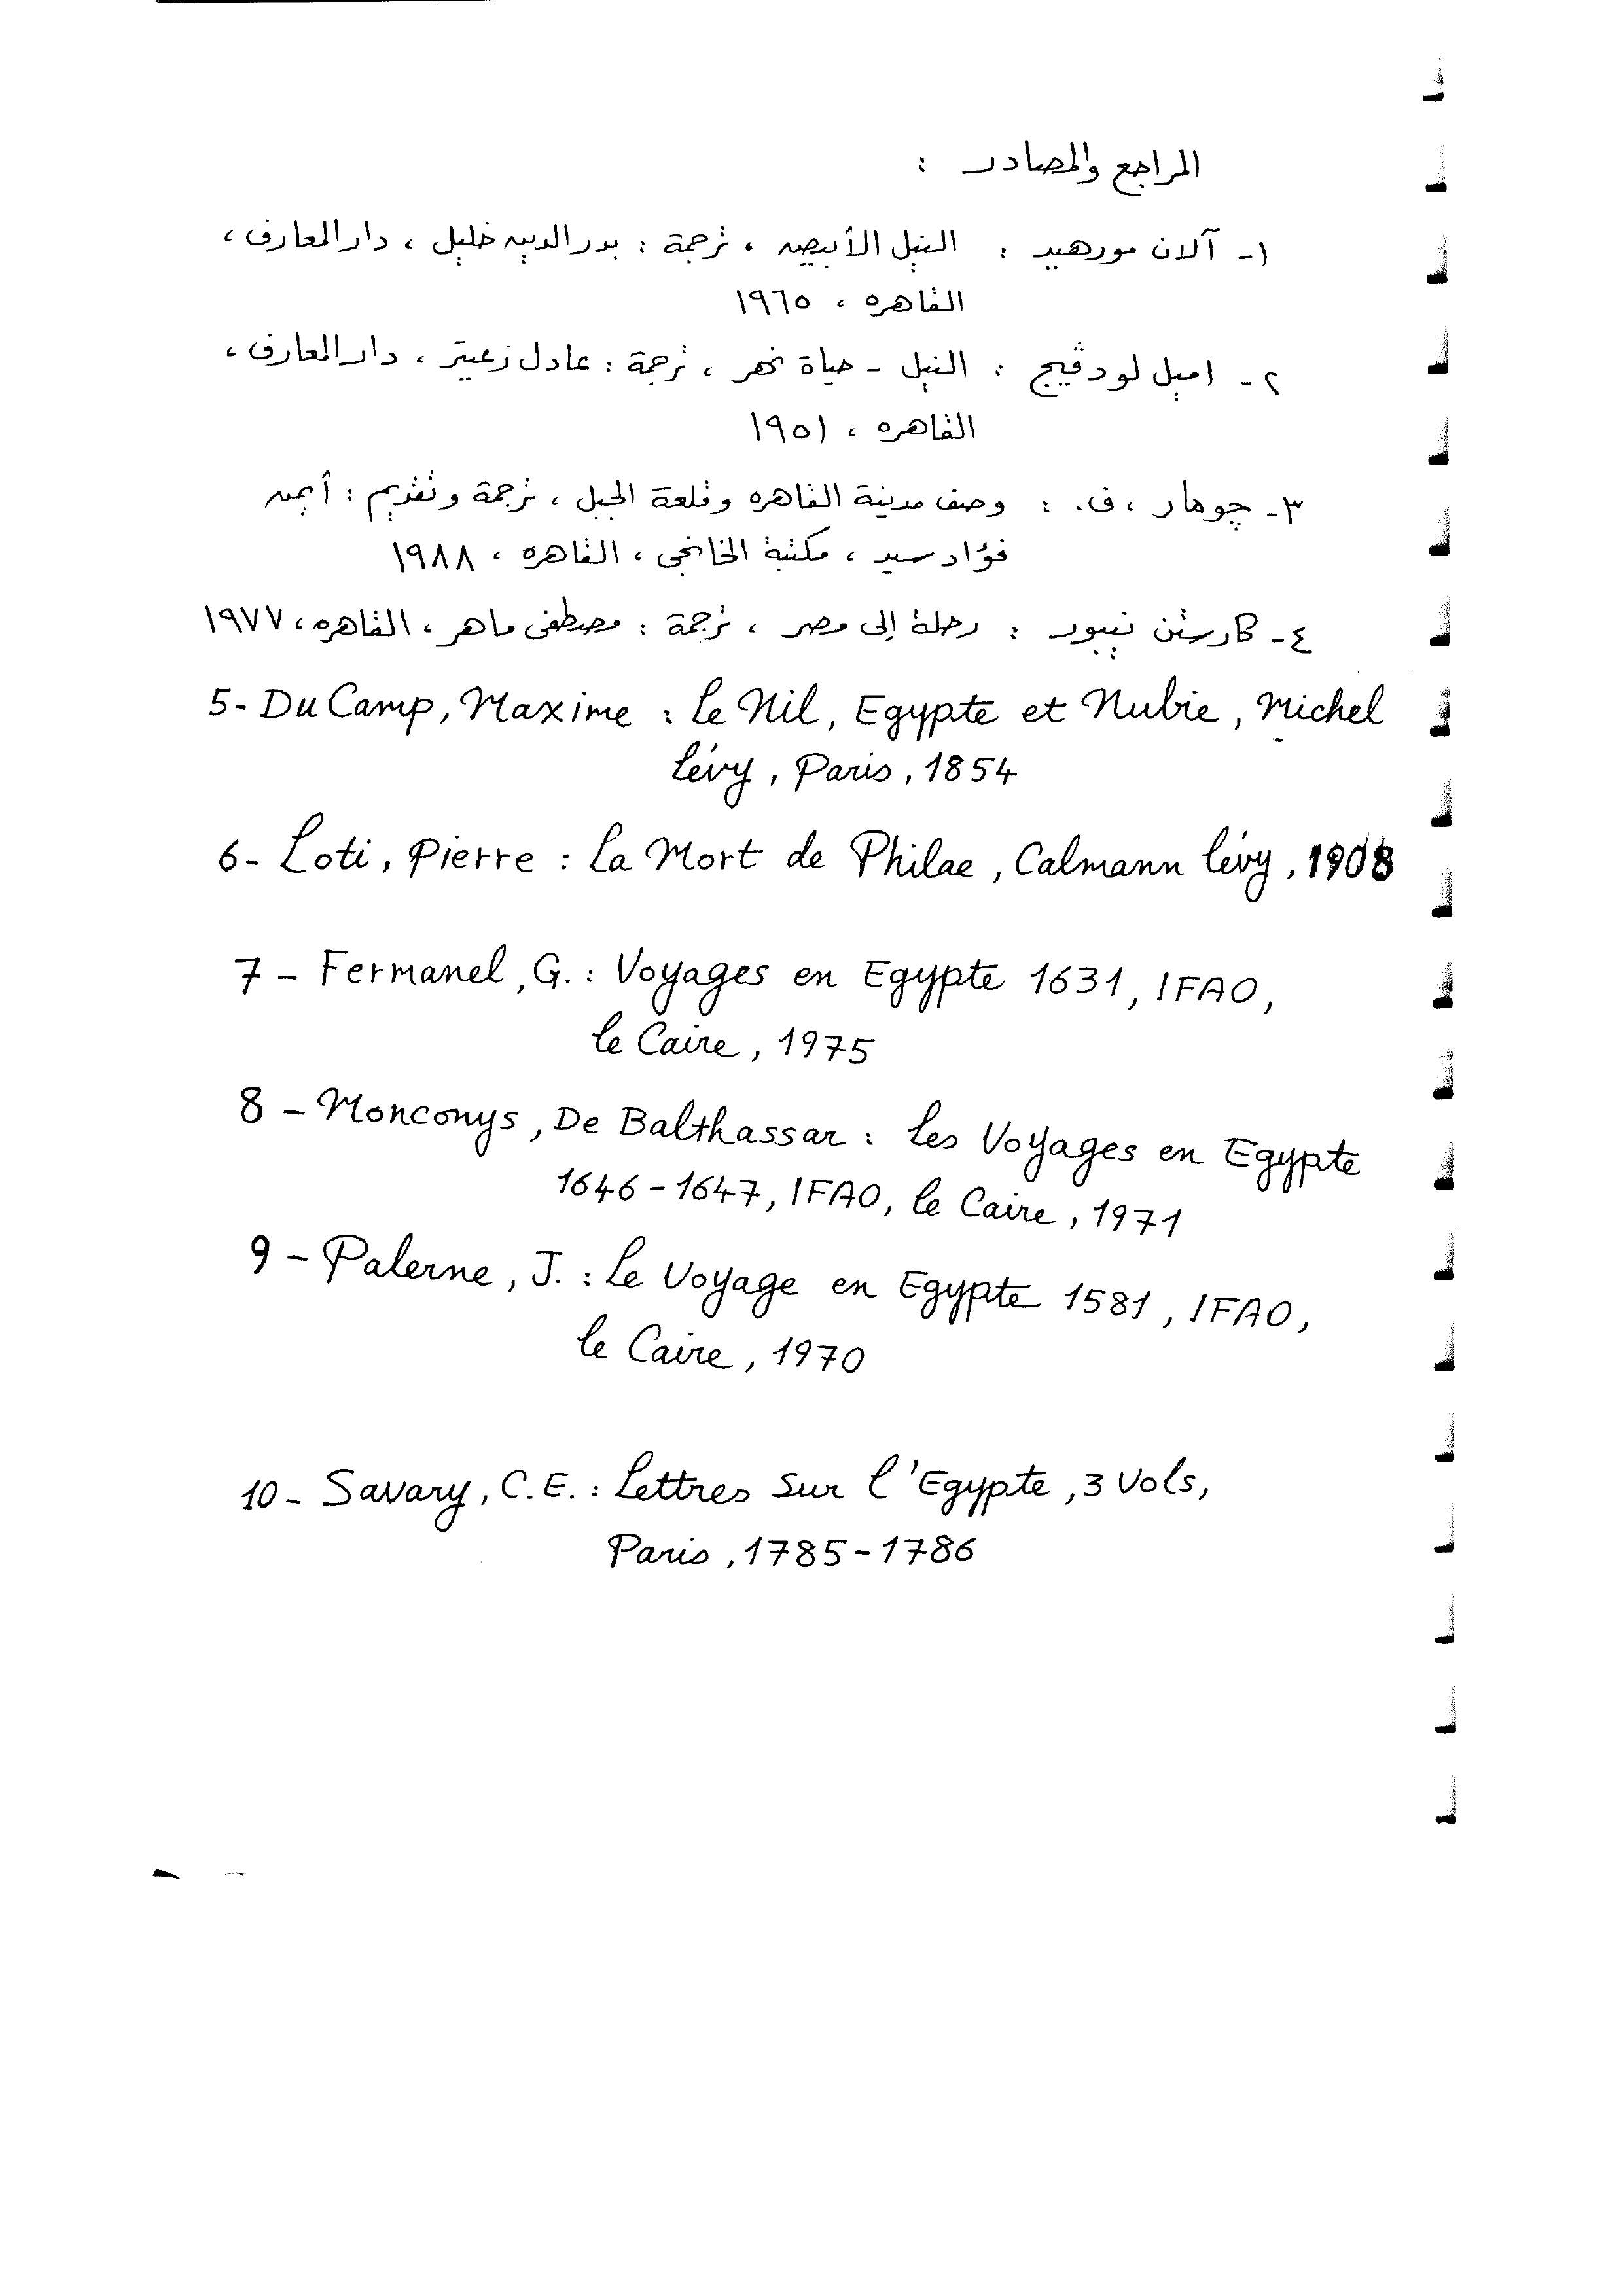 المراجع والمصادر :
١- آلان مورهيد : النيل الأبيض ، ترجمة : بدر الدين خليل ، دار المعارف ،
القاهره ، ١٩٦٥
٢- اميل لودڤيج : النيل - حياة نهر ، ترجمة : عادل زعيتر ، دار المعارف ،
القاهره ، ١٩٥١
٣- چومار ، ف. : وصف مدينة القاهره وقلعة الجبل ، ترجمة وتقديم : أيمن
فؤاد سيد ، مكتبة الخانجى ، القاهره ، ١٩٨٨
٤- كارستن نيبور : رحلة إلى مصر ، ترجمة : مصطفى ماهر ، القاهره ، ١٩٧٧
5- Du Camp, Maxime : Le Nil, Egypte et Nubie, Michel
Lévy, Paris, 1854
6- Loti, Pierre : La Mort de Philae, Calmann Lévy, 1908
7- Fermanel, G. : Voyages en Egypte 1631, IFAO,
Le Caire, 1975
8- Monconys, De Balthassar : Les Voyages en Egypte
1646-1647, IFAO, Le Caire, 1971
9- Palerne, J. : Le Voyage en Egypte 1581, IFAO,
Le Caire, 1970
10- Savary, C.E. : Lettres Sur l'Egypte, 3 Vols,
Paris, 1785-1786